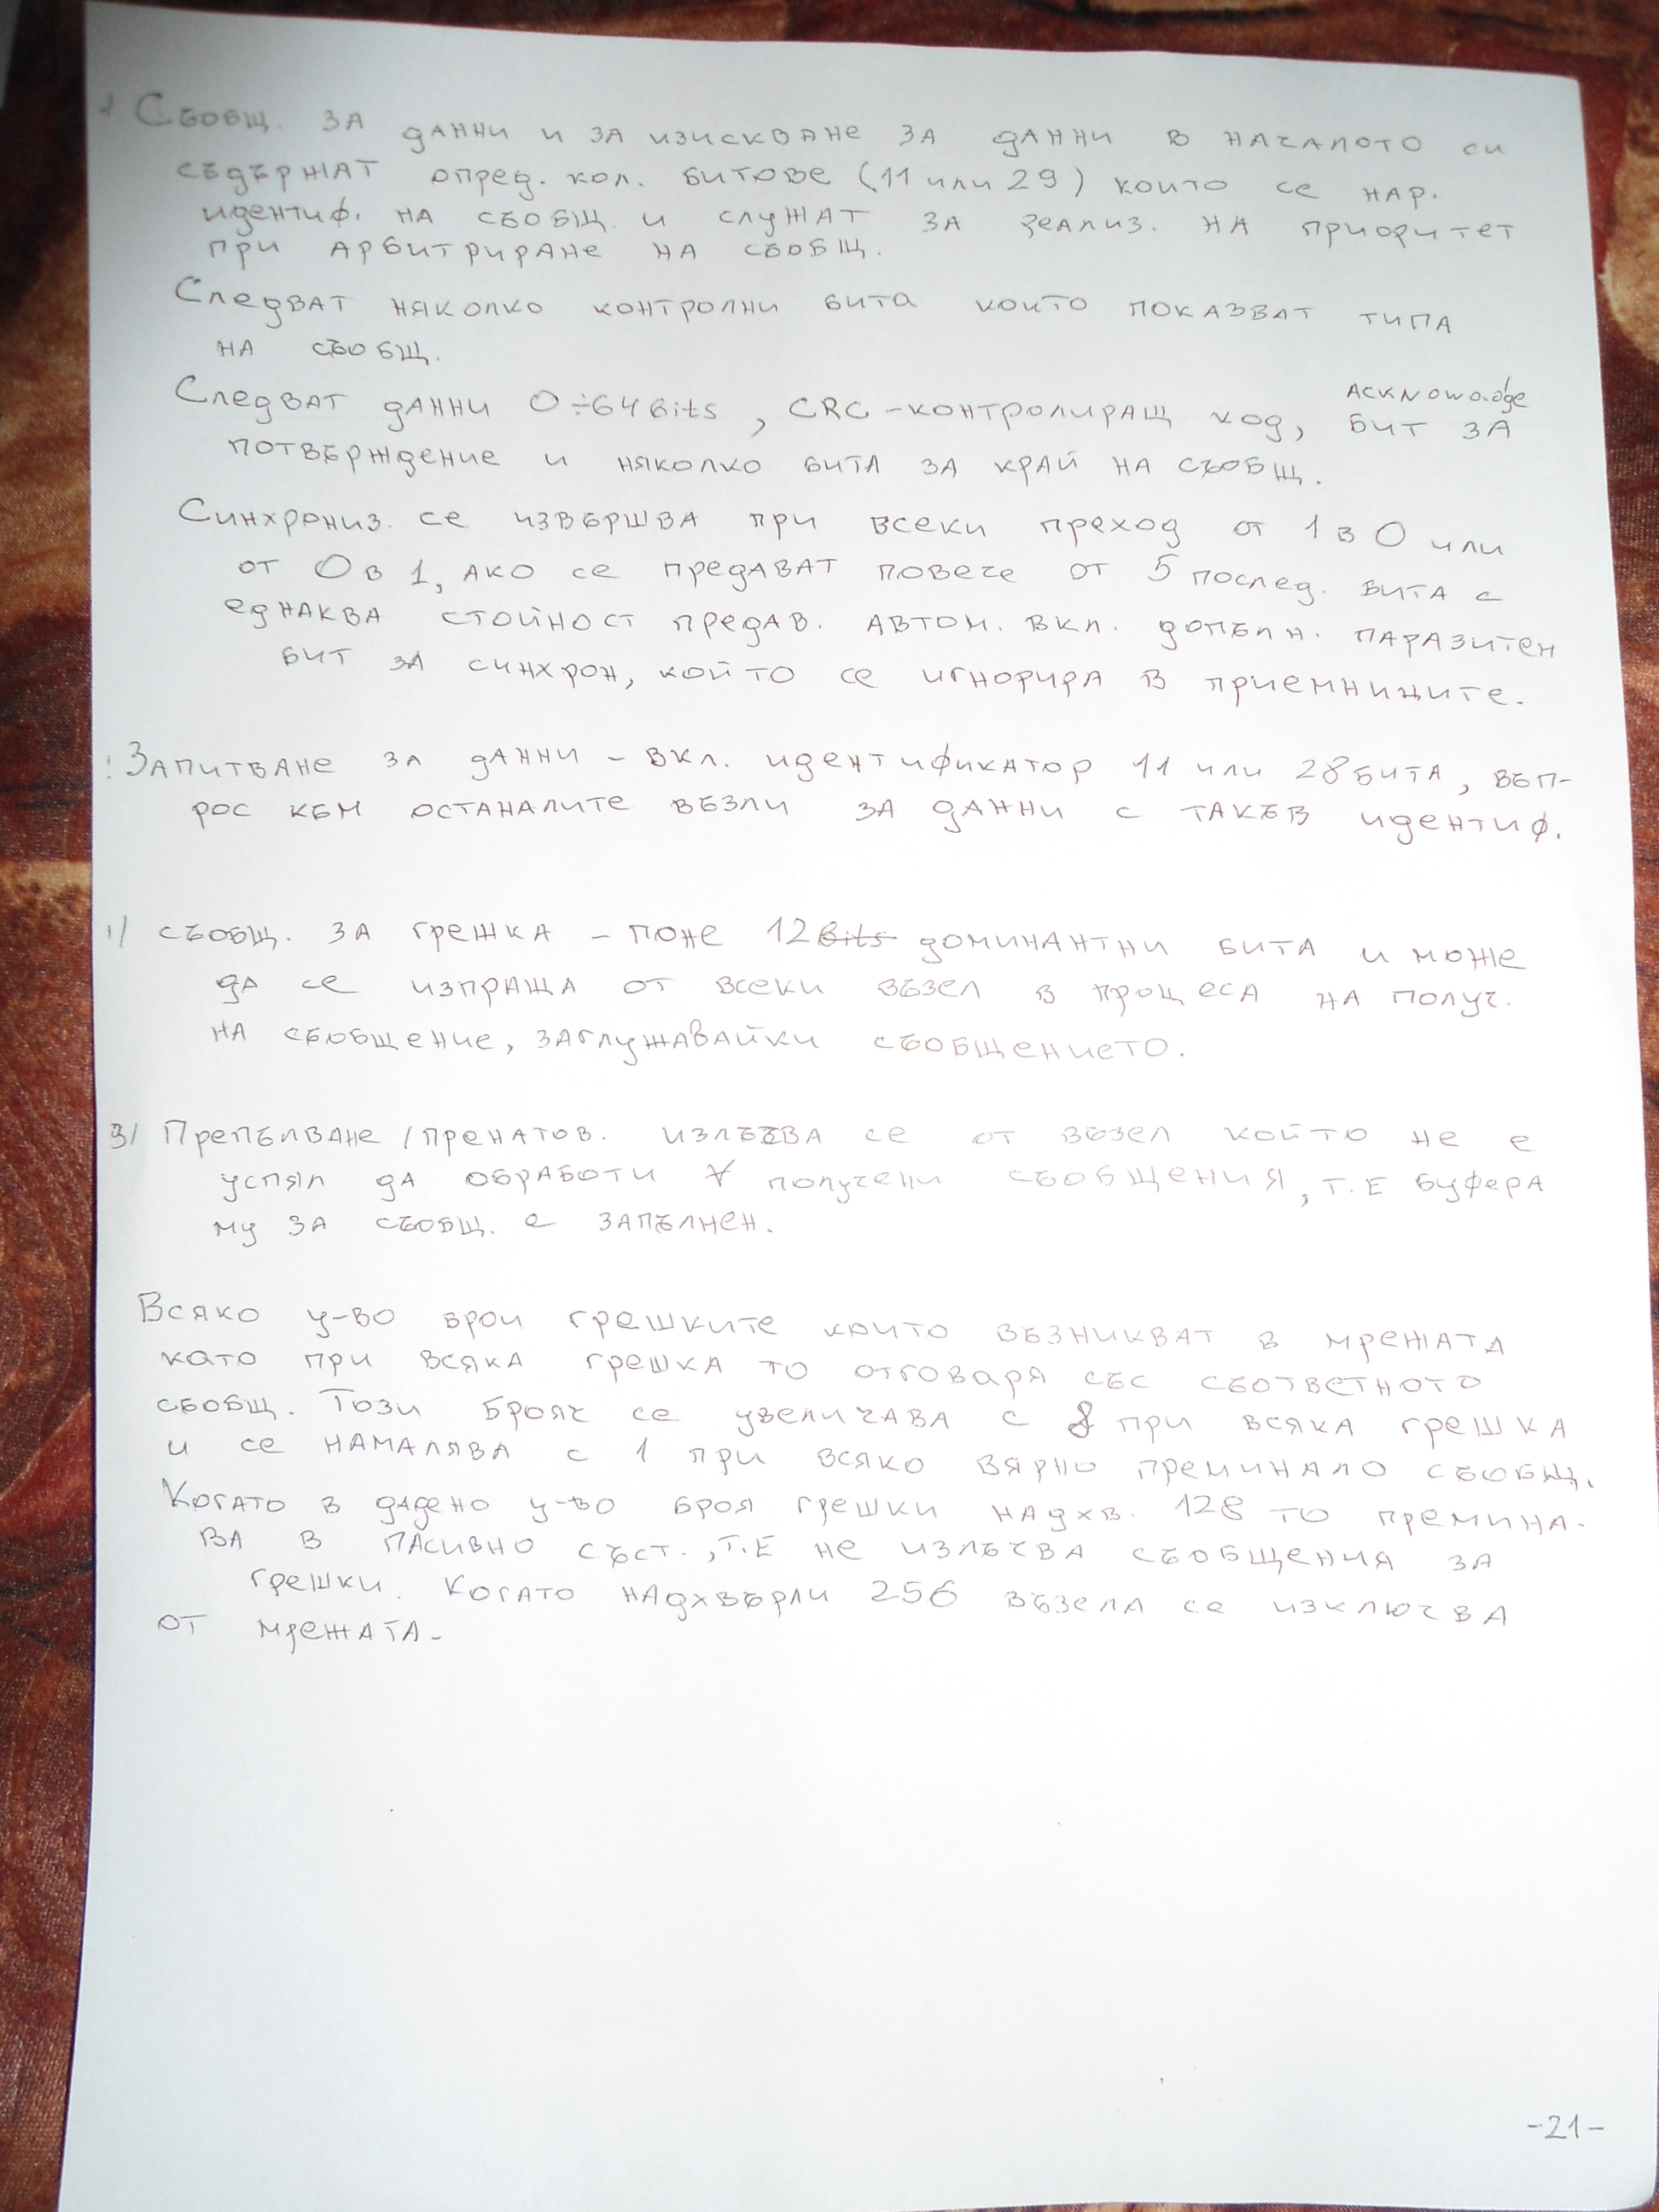 Съобщ. за данни и за изискване за данни в началото си
съдържат опред. кол. битове (11 или 29) които се нар.
идентиф. на съобщ. и служат за реализ. на приоритет
при арбитриране на съобщ.
Следват няколко контролни бита които показват типа
на съобщ.
Acknowo.dge
Следват данни 0÷64 bits, CRC-контролиращ код, бит за
потвърждение и няколко бита за край на съобщ.
Синхрониз. се извършва при всеки преход от 1 в 0 или
от 0 в 1, ако се предават повече от 5 послед. бита с
еднаква стойност предав. автом. вкл. допълн. паразитен
бит за синхрон, който се игнорира в приемниците.
Запитване за данни - вкл. идентификатор 11 или 28 бита, въп-
рос към останалите възли за данни с такъв идентиф.
съобщ. за грешка - поне 12 bits доминантни бита и може
да се изпраща от всеки възел в процеса на получ.
на съобщение, заглушавайки съобщението.
3/ Препълване /пренатов. излъчва се от възел който не е
успял да обработи ∀ получени съобщения, т.е буфера
му за съобщ. е запълнен.
Всяко у-во брои грешките които възникват в мрежата
като при всяка грешка то отговаря със съответното
съобщ. Този брояч се увеличава с 8 при всяка грешка
и се намалява с 1 при всяко вярно преминало съобщ.
Когато в дадено у-во броя грешки надхв. 128 то премина-
ва в пасивно съст., т.е не излъчва съобщения за
грешки. Когато надхвърли 256 възела се изключва
от мрежата.
-21-